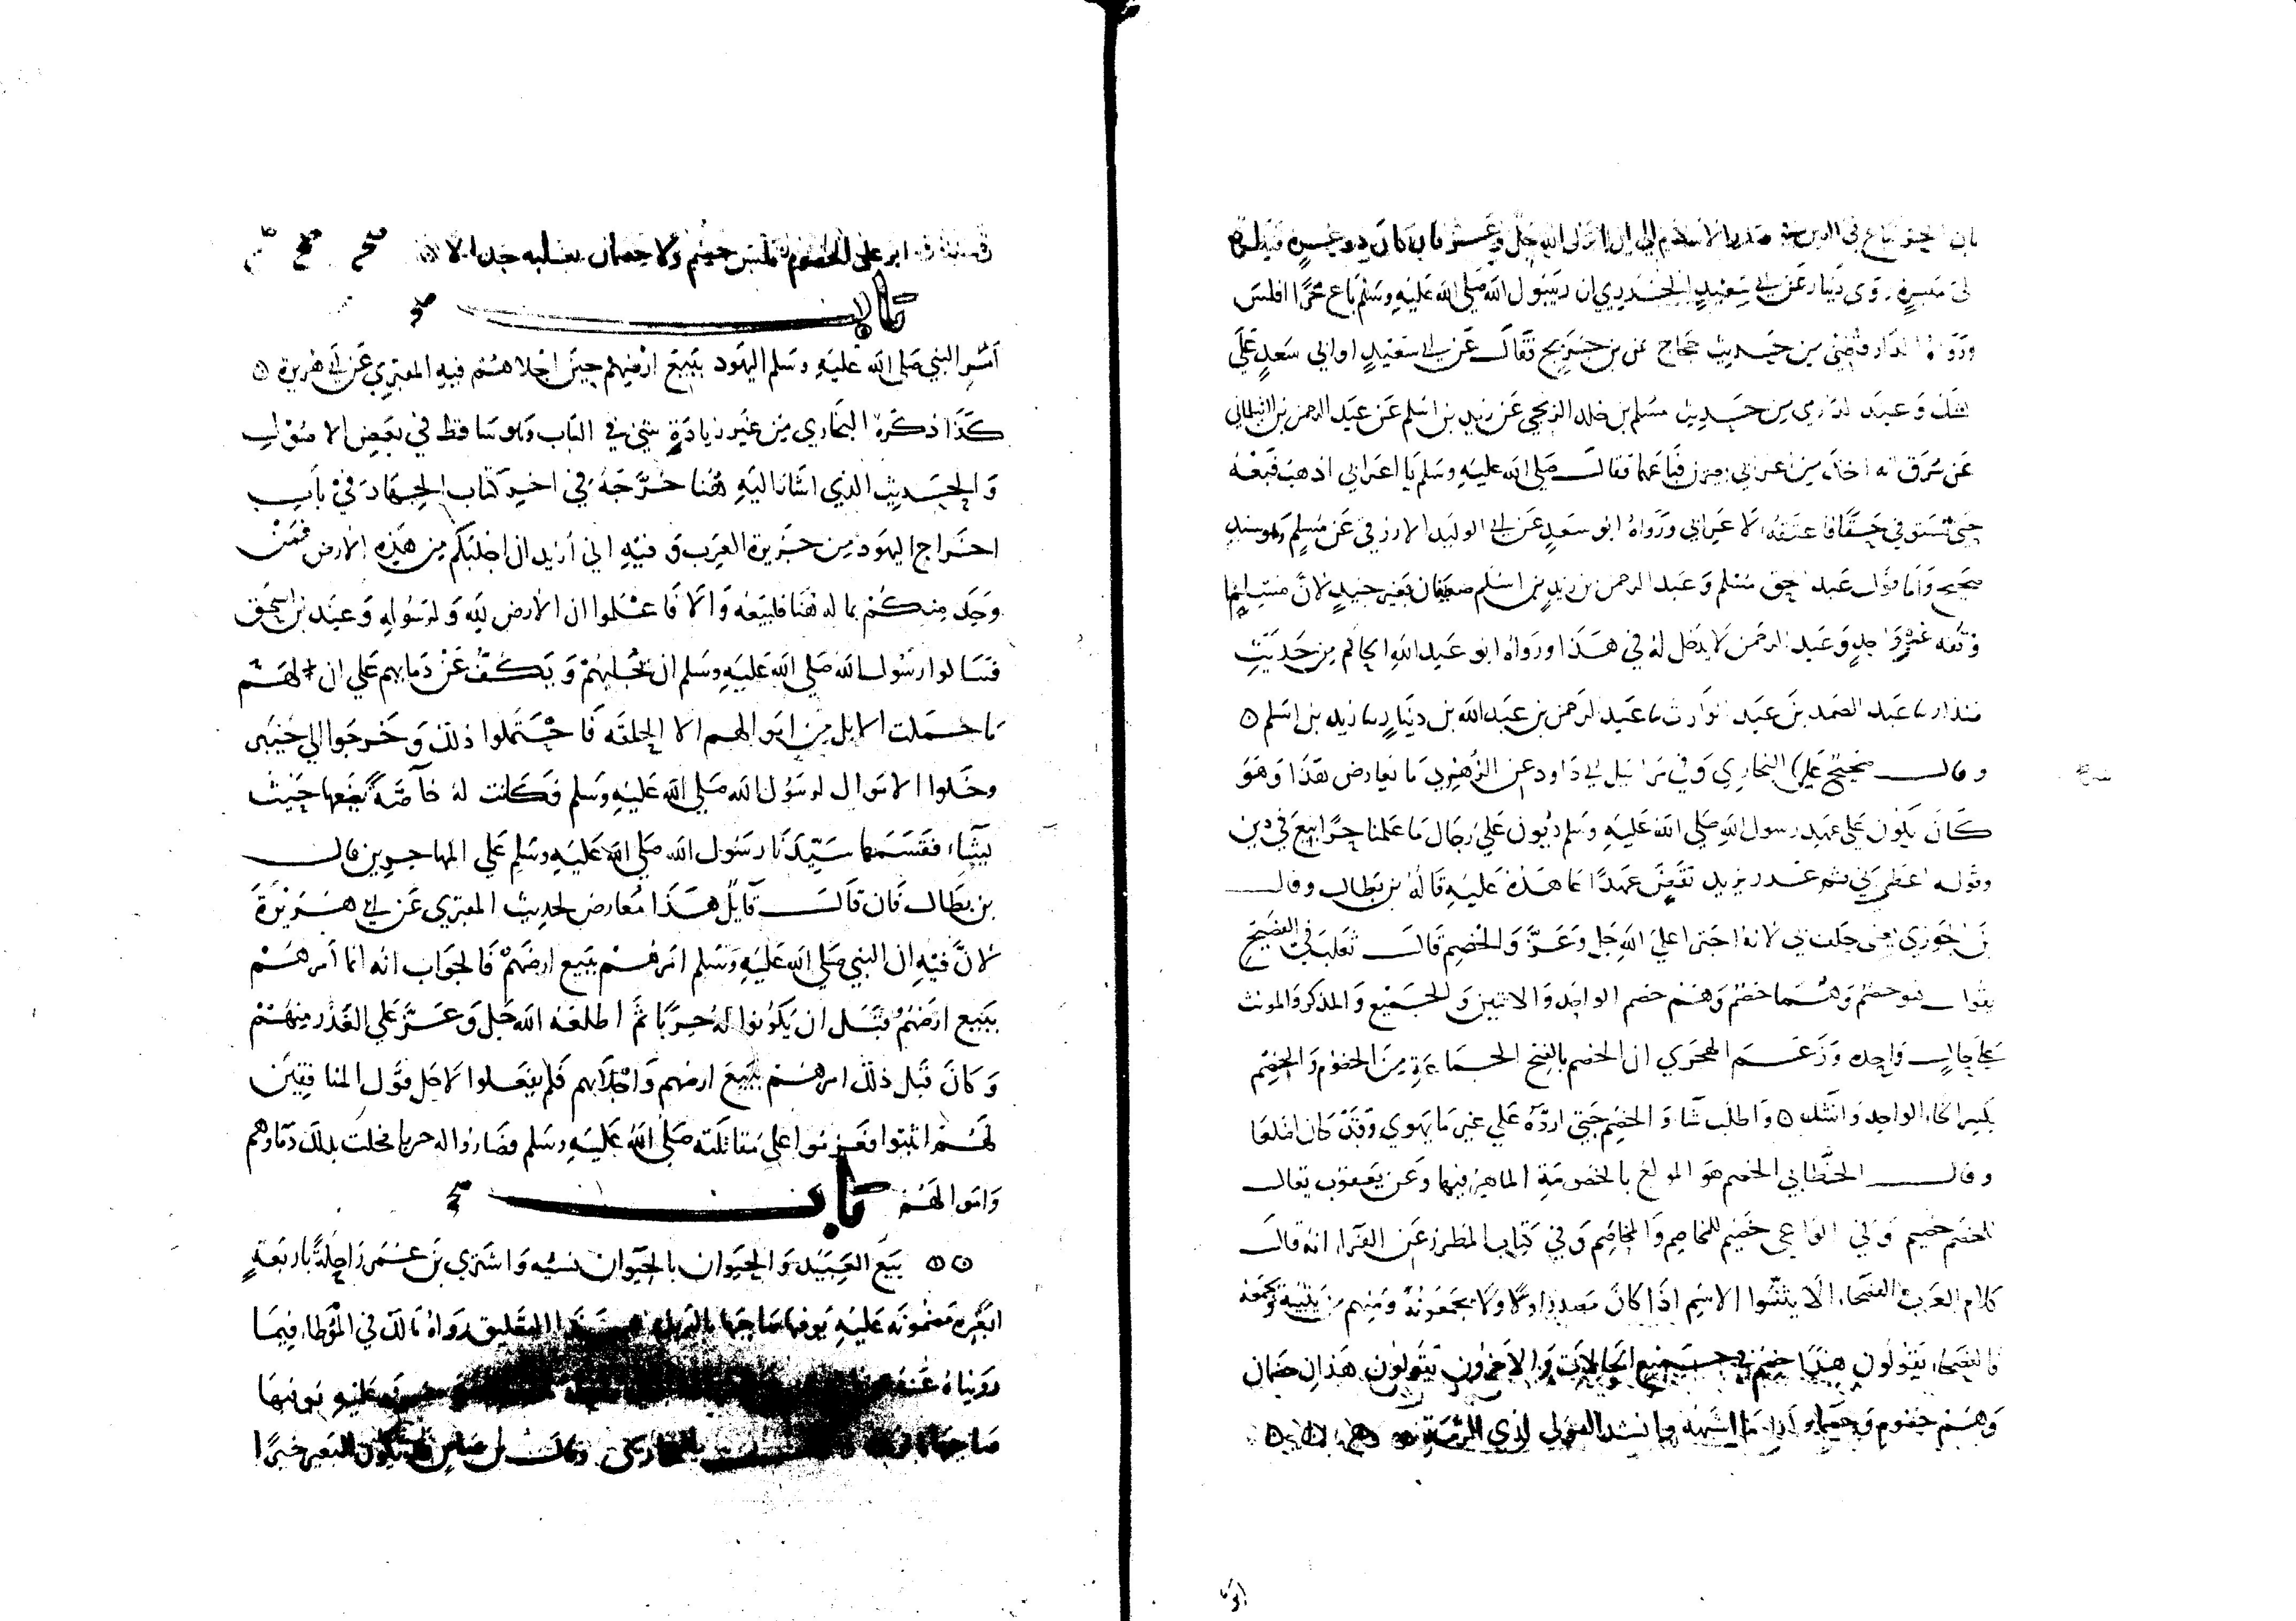 بان الحر يباع في الدين في صدر الاسلام الي ان انزل الله جل وعز فان كان ذو عسرة فنظرة
الي ميسرة روي دينار عن ابي سعيد الخدري ان رسول الله صلي الله عليه وسلم باع حرا افلس
ورواه الدارقطني من حديث حجاج عن بن جريج فقال عن ابي سعيد او ابي سعد علي
الشك وعند من حديث مسلم بن خلد الزنجي عن زيد بن اسلم عن عبد الرحمن بن البيلماني
عن سرق انه اخذ من اعرابي فباعهما فقال صلي الله عليه وسلم يا اعرابي اذهب فبعه
حتي تستوفي حقك فاعتقه الاعرابي ورواه ابو سعد عن ابي الوليد الازرقي عن مسلم وهو سند
صحيح واما قول عبد الحق مسلم وعبد الرحمن بن زيد بن اسلم ضعيفان فغير جيد لان مسلما
وثقه غير واحد وعبد الرحمن لا يدخل له في هذا ورواه ابو عبد الله الحاكم من حديث
بندار نا عبد الصمد بن عبد الوارث نا عبد الرحمن بن عبد الله بن دينار نا زيد بن اسلم ه
وقال صحيح علي البخاري وفي مراسيل ابي داود عن الزهري ما يعارض هذا وهو
كان يكون علي عهد رسول الله صلي الله عليه وسلم ديون علي رجال ما علمنا حرا بيع في دين
وقوله اعطي بي ثم غدر يريد نقض عهدا عاهده عليه قاله بن بطال وقال
بن الجوزي يعني حلف بي لانه اجترا علي الله جل وعز والخصم قال ثعلب في الفصيح
يقول هو خصم وهما خصم وهم خصم الواحد والاثنين والجميع والمذكر والمونث
علي حال واحده وزعم الهجري ان الخصم بالفتح الجماعة من الخصوم والخصم
بكسر الخاء الواحد وانشد ه واطلب شاو الخصم حتي ارده علي غير ما يهوي وقد كان اضلعا
وقال الخطابي الخصم هو المولع بالخصومة الماهر فيها وعن يعقوب يقال
للخصم خصيم وفي الواعي خصيم للمخاصم والمخاصم وفي كتاب المطرز عن الفراء انه قال
كلام العرب الفصحاء الا يثنوا الاسم اذا كان مصدرا ولا يجمعونه ومنهم من يثنيه ويجمعه
فالفصحاء يقولون هذا خصم في جميع الحالات والاخرون يقولون هذان خصمان
وهم خصوم وخصماء وكذا ما اشبهه وانشد القولي لذي الرمة
ابر علي الخصوم فليس خصم ولا خصمان يغلبه جدالا صح
باب
امر النبي صلي الله عليه وسلم اليهود ببيع ارضهم حين اجلاهم فيه المقبري عن ابي هريرة ه
كذا ذكره البخاري من غير زيادة شي في الباب وهو ساقط في بعض الاصول
والحديث الذي اشار اليه هنا خرجه في اخر كتاب الجهاد في باب
اخراج اليهود من جزيرة العرب وفيه اني اريد ان اجليكم من هذه الارض فمن
وجد منكم بماله هنا فليبعه والا فاعلموا ان الارض لله ولرسوله وعند بن اسحق
فسالوا رسول الله صلي الله عليه وسلم ان يجليهم ويكف عن دمايهم علي ان لهم
ما حملت الابل من اموالهم الا الحلقه فاحتملوا ذلك وخرجوا الي خيبر
وخلوا الاموال لرسول الله صلي الله عليه وسلم فكانت له خاصة يضعها حيث
يشاء فقسمها سيدنا رسول الله صلي الله عليه وسلم علي المهاجرين قال
بن بطال فان قال قايل هذا معارض لحديث المقبري عن ابي هريرة
لان فيه ان النبي صلي الله عليه وسلم امرهم ببيع ارضهم فالجواب انه انما امرهم
ببيع ارضهم قبل ان يكونوا له حربا ثم اطلعه الله جل وعز علي الغدر منهم
وكان قبل ذلك امرهم ببيع ارضهم واجلايهم فلم يفعلوا لاجل قول المنافقين
لهم اثبتوا فعزموا علي مقاتلته صلي الله عليه وسلم فصاروا له حربا فحلت بذلك دماوهم
واموالهم باب
بيع العبيد والحيوان بالحيوان نسيه واشتري بن عمر راحلة باربعة
ابعرة مضمونه عليه يوفها صاحبها بالربذة هذا التعليق رواه مالك في الموطا فيما
رويناه عنه عليه يوفيها
صاحبها وقال بن عباس قد يكون البعير خيرا